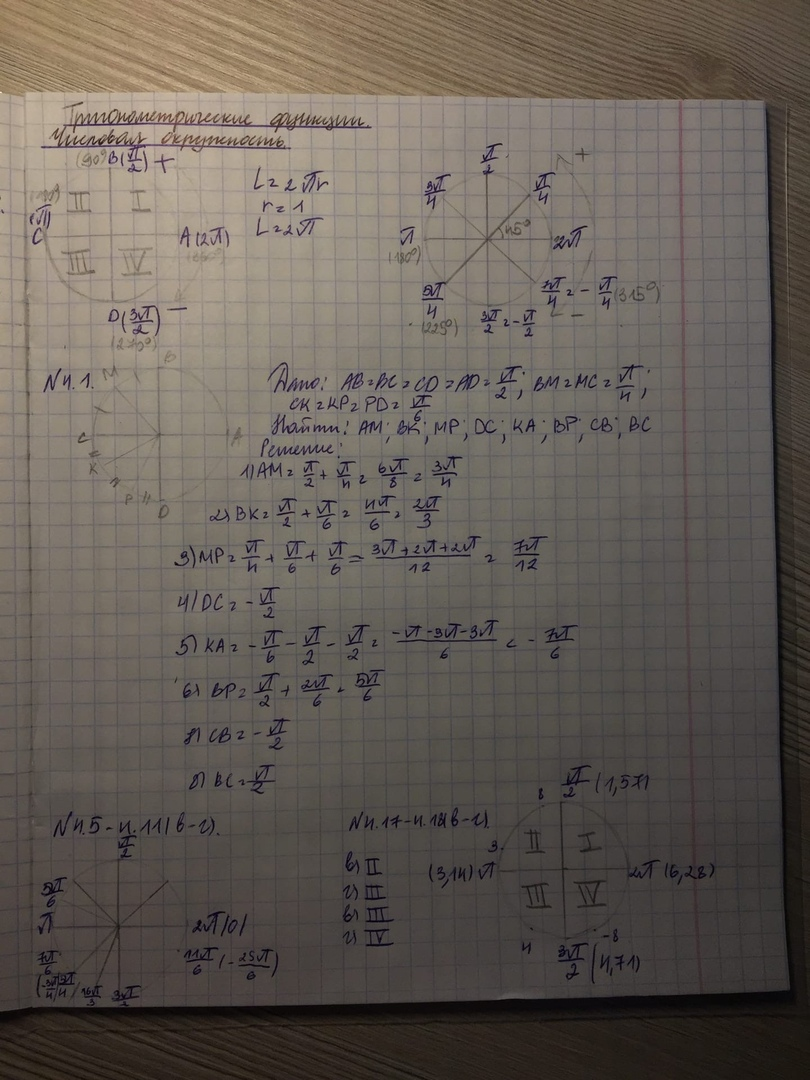 Тригонометрические функции.
Числовая окружность.
(90°) B(π/2) +
II I
(π)
C
A(2π)
III IV
D(3π/2) −
(270°)
L = 2πr
r = 1
L = 2π
π/2
+
3π/4 π/4
π 45° 2π
(180°)
5π/4 7π/4 = −π/4 (315°)
(225°) 3π/2 = −π/2 −
N4.1.
B
M
C A
K
P
D
Дано: AB=BC=CD=AD=π/2; BM=MC=π/4;
CK=KP=PD=π/6
Найти: AM; BK; MP; DC; KA; BP; CB; BC
Решение:
1) AM = π/2 + π/4 = 6π/8 = 3π/4
2) BK = π/2 + π/6 = 4π/6 = 2π/3
3) MP = π/4 + π/6 + π/6 = 3π+2π+2π/12 = 7π/12
4) DC = −π/2
5) KA = −π/6 − π/2 − π/2 = −π−3π−3π/6 = −7π/6
6) BP = π/2 + 2π/6 = 5π/6
7) CB = −π/2
8) BC = π/2
N4.5-4.11(в-г).
π/2
5π/6
π 2π(0)
7π/6 11π/6 (−25π/6)
3π/2
N4.17-4.18(в-г).
в) II
г) III
в) III
г) IV
8 π/2 (1,57)
3 II I
(3,14) π 2π (6,28)
III IV
4 −8
3π/2 (4,71)